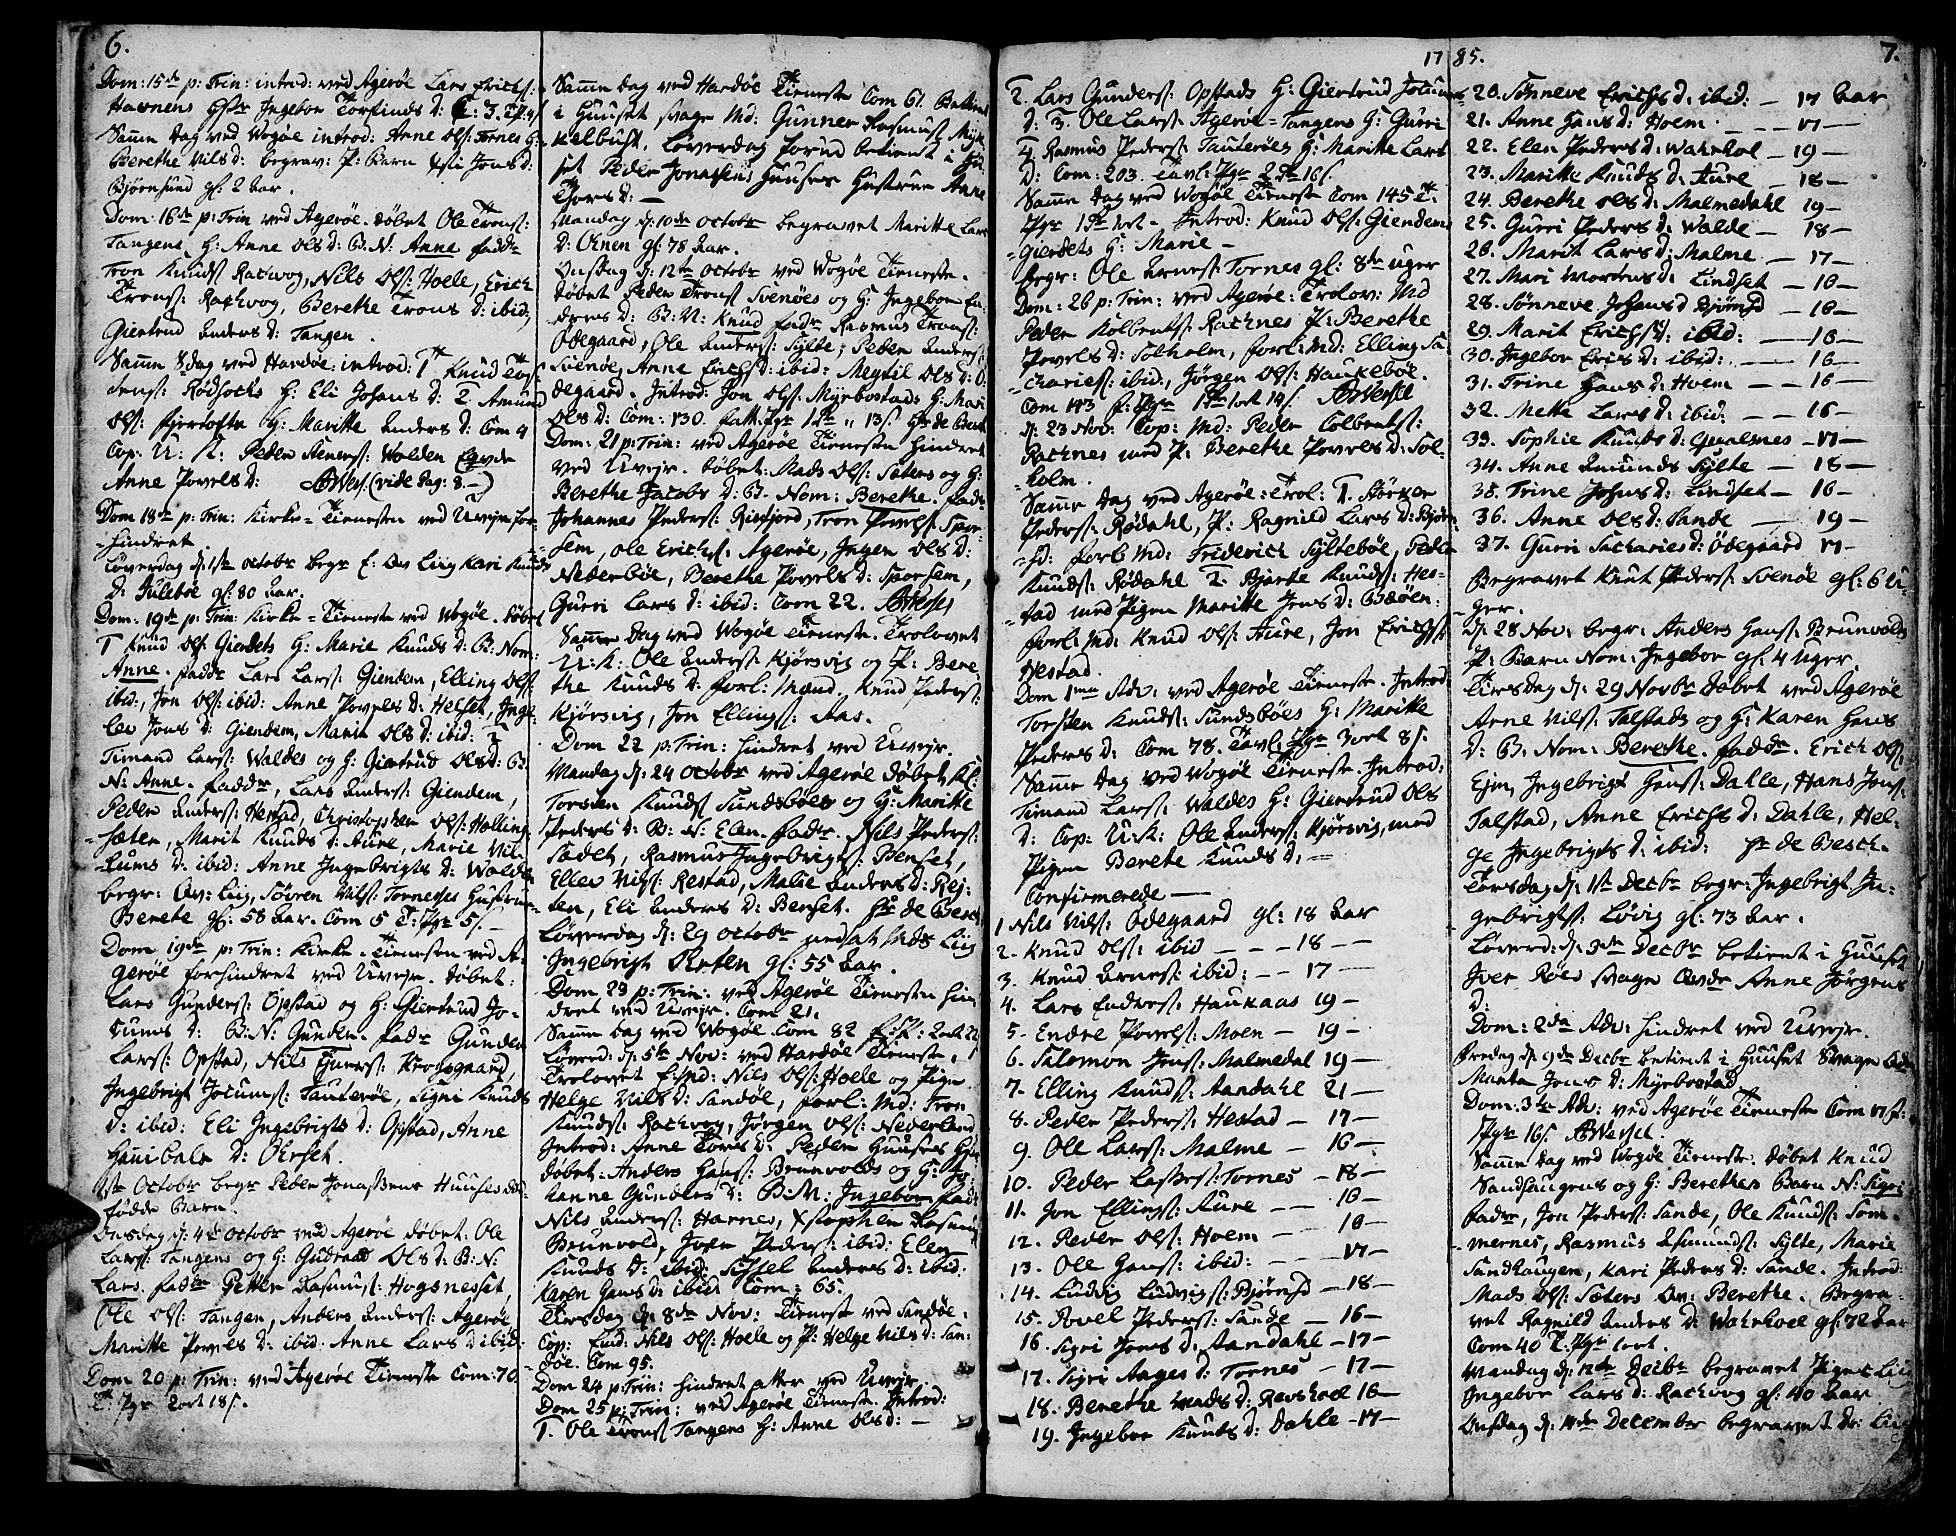 6.
Dom: 15de p: Trin: introd: ved Agerøe Lars Erichs:
Havnens H: Ingebor Torfinds D:
Samme dag ved Wogøe introd: Anne Ols: Tornes H:
Berethe Nils D: begrav: P: Barn Jons D:
Bjørnsund gl: 2 aar.
Dom: 16de p: Trin ved Agerøe. Døbet Ole Trons:
Tangens H: Anne Ols D: B: N: Anne fadde
Tron Knuds Rachvog, Nils Ols: Hoele, Erich
Trons: Rachvog, Berethe Trons D: ibid,
Giertrud Anders D: Tangen.
Samme dag ved Harøe: introd: T Knud
Rødsochs H: Eli Johans D: T Amund
Ols: Fjertofte H: Maritte Anders D: Com 4
Cop: U: K: Peder Steners: Walden Egvde
Anne Povels D: (vide pag: 8.)
Dom 18de p: Trin: Kirke-Tienesten ved Uvejr for-
-hindret
Løverdag d: 1ste octobr begr Kari Knuds
D: Julebøe gl: 80 aar.
Dom: 19de p: Trin: Kirke-Tieneste ved Wogøe. Døbet
T Knud Ols Gierdets H: Marie Knuds D: B: Nom:
Anne. fadde Lars Lars: Giendem, Elling Ols:
ibid:, Jon Ols: ibid: Anne Povels D: Helset, Inge-
Jons D: Giendem, Marit Ols D: ibid: T
Timand Lars: Waldes og H: Giertrud Ols D: B:
N: Anne. fadde, Lars Anders: Giendem,
Peder Anders: Hestad, Christopher Ols: Holling-
-sæter, Marit Knuds D: Aure, Marie
D: ibid: Anne Ingebrigts D: Walde
begr: Søvren Nils: Tornesses Hustrue
Berete gl: 58 aar. Com 5
Dom 19de p: Trin: Kirke-Tienesten ved A-
gerøe forhindret ved Uvejr. Døbet:
Lars Gunders: Opstad og H: Giertrud Jo-
cums D: B: N: Gunder. fadr Gunder
Lars: Opstad, Nils Krogsgaard,
Ingebrigt Jocums: Tauterøe, Signi Knuds
D: ibid: Eli Ingebrigts D: Opstad, Anne
Hannibals D: Orset.
1ste Octobr begr Peder Jonassens Huuses død-
fødde Barn.
Onsdag d: 4de octobr ved Agerøe døbet: Ole
Lars: Tangens og H: Ols D: B: N:
Lars. fadr Petter Rasmus: Hogsnesset,
Ole Ols: Tangen, Anders Anders: Agerøe,
Maritte Povels D: ibid: Anne Lars D: ibid:
Dom 20 p: Trin: ved Agerøe Tieneste Com: 70
2ort 18s.
Samme dag ved Harøe Tieneste Com 61. Betient
i Huuset svage Md: Gunner Rasmus: Myk-
kelbust. Løverdag betient i Huu-
set Peder Jonassens Huuses Hustrue Anne
Tjors D: —
Mandag d: 10de octobr begravet Maritte Lars
D: Ornen gl: 78 aar.
Onsdag d: 12te octobr ved Wogøe Tieneste.
Døbet Peder Trons: Svenøes og H: Ingebor En-
dres D: B: N: Knud fadr Rasmus Trons:
Ødegaard, Ole Anders: Sylte, Peder Anders:
Svenøe, Anne Erichs D: ibid: Magtil Ols D: Ø-
degaard. Introd: Jon Ols: Myrbostads H: Mari
Ols D: Com: 130.
Dom: 21 p: Trin: ved Agerøe Tienesten hindret
ved Uvejr. Døbet: Mads Ols: Sæters og H:
Berethe Jacobs D: B. Nom: Berethe. fadr
Johannes Peders: Risfjord, Tron Povels: Spor-
sem, Ole Erichs: Agerøe, Ingen Ols D:
Nederbøe, Berethe Povels D: Sporsem,
Gurri Lars D: ibid: Com 22.
Samme dag ved Wogøe Tieneste. Trolovet
U: K: Ole Anders: Kjørsvig og P: Bere-
the Knuds D: forl: Mænd. Knud Peders:
Kjørsvig, Jon Ellings: Aas.
Dom 22 p: Trin: hindret ved Uvejr.
Mandag d: 24 octobr ved Agerøe døbet
Torsten Knuds: Sundsbøes og H: Maritte
Peders D: B: N: Elen. fadr. Nils Peders:
Sadet, Rasmus Ingebrigts: Benset,
Eller Nils: Restad, Malie Anders D: Rej-
ten, Eli Anders D: Benset. de Besch:
Løverdag d: 29 octobr nedsat Md: Liig
Ingebrigt Orten gl: 55 aar.
Dom 23 p: Trin: ved Agerøe Tienesten hin-
dret ved Uvejr. Com 21.
Samme dag ved Wogøe Com 82
Løverd: d: 5te Nov: ved Harøe Tieneste,
Trolovet Nils Ols: Hoele og Pige
Helge Nils D: Sandøe, forl: Md: Tron
Knuds: Rachvog, Jørgen Ols: Nederland
Introd: Anne Tors D: Peder Huuses H:
Døbet: Anders Hans: Brunvolds og H: Jo-
hanne Gunders D: B: N: Ingebor. fad:
Nils Anders: Harnes, Xstopher Rasmus:
Brunvold, Peders: ibid: Elen
Knuds D: ibid: Sissel Anders D: ibid:
Karen Hans D: ibid Com: 65.
Tirsdag d: 8de Nov: Tieneste ved Sandøe.
Cop: Nils Ols: Hoele og P: Helge Nils D: San-
døe. Com 95.
Dom 24 p: Trin: hindret atter ved Uvejr.
Dom 25 p: Trin: ved Agerøe Tieneste. Introd:
T. Ole Trons: Tangens H: Anne Ols D: —
1785.
2. Lars Gunders: Opstads H: Giertrud Jocums
D: 3. Ole Lars: Agerøe-Tangens H: Gurri
4 Rasmus Peders: Tauterøes H: Maritte Lars
D: Com: 203. 16s.
Samme dag ved Wogøe Tieneste Com 145
Introd: Knud Ols: Giendem-
-gierdets H: Marie —
Begr: Ole Arnes: Tornes gl: 8te uger
Dom: 26 p: Trin: ved Agerøe: Trolov: Md
Peder Kolbents: Rachnes P: Berethe
Povels D: Solholm, forl: Md: Elling Sa-
-charies: ibid:, Jørgen Ols: Haukebøe.
Com 143
d: 23 Nov: Cop: Md: Peder Colbents:
Rachnes med P: Berethe Povels D: Sol-
holm.
Samme dag ved Agerøe: Trol: T. Størker
Peders: Rødahl, P: Ragnild Lars D: Bjørn-
-sd: forl Md: Friderich Syltebøe, Peder
Knuds: Rødahl T. Bjørte Knuds: Hes-
-tad med Pigen Maritte Jens D:
forl: Md: Knud Ols: Aure, Jon Erichs:
Hestad.
Dom 1me Adv: ved Agerøe Tieneste. Introd:
Torsten Knuds: Sundsbøes H: Maritte
Peders D: Com 78. 3ort 8s.
Samme dag ved Wogøe Tieneste. Introd:
Timand Lars: Waldes H: Giertrud Ols
D: Cop: U: K: Ole Anders: Kjørsvig, med
Pigen Berete Knuds D: —
Confirmerede —
1 Nils Nils: Ødegaard gl: 18 aar
2. Knud Ols: ibid — — 18 —
3. Knud Arnes: ibid: — 17 —
4. Lars Enders: Haukaas 19 —
5. Endre Povels: Moen — 19 —
6. Salomon Jens: Malmedal 19 —
7. Elling Knuds: Aandahl 21 —
8. Peder Peders: Hestad — 17 —
9. Ole Lars: Malme — 16 —
10. Peder Lasses: Tornes — 18 —
11. Jon Ellings: Aure — 16 —
12. Peder Ols: Hoem — 16 —
13. Ole Hans: ibid: — 17 —
14. Ludvig Ludvigs: Bjørnsd — 18 —
15. Povel Peders: Sande — 16 —
16. Sigri Jens D: Aandahl — 17 —
17. Sigri Aages D: Tornes — 17 —
18. Berethe Mads D: Ravshoel 16 —
19. Ingebor Knuds D: Dahle — 17 —
7.
20. Sønneve Erichs D: ibid: — 17 aar
21. Anne Hans D: Hoem — 17 —
22. Elen Peders D: Wahrhol — 19 —
23. Maritte Knuds D: Aure — 18 —
24. Berethe Ols D: Malmedahl 19 —
25. Gurri Peders D: Walde — 18 —
26. Marit Lars D: Malme — 17 —
27. Mari Mortens D: Lindset — 16 —
28. Sønneve Johans D Bjørnsd — 16 —
29. Marit Erichs D: ibid: — 16 —
30. Ingebor Erics D: ibid: — 16 —
31. Trine Hans D: Hoem — 16 —
32. Mette Lars D: ibid: — 16 —
33. Sophie Knuds D: Gualsnes — 17 —
34. Anne Amunds Sylte — 18 —
35. Trine Johns D: Lindset — 16 —
36. Anne Ols D: Sande — 19 —
37. Gurri Sacharies D: Ødegaard 17 —
Begravet Knut Peders: Svenøe gl: 6 U-
-ger.
d: 28 Nov: begr: Anders Hans: Brunvolds
P: Barn Nom: Ingebor gl: 4 Uger.
Tirsdag d: 29 Novbr døbet ved Agerøe
Arne Nils: Talstads og H: Karen Hans
D: B: Nom: Berethe. fadde. Erich Ols:
Ejen, Ingebrigt Hans: Dahle, Hans Jons:
Talstad, Anne Erichs D: Dahle, Hel-
ge Ingebrigts D: ibid: de Besch.
Torsdag d: 1ste Decbr begr: Ingebrigt In-
gebrigts: Løvig gl: 73 aar.
Løverd: d: 3de Decbr betient i Huuset
Iver Røes svage Anne Jørgens
D:
Dom: 2den Adv: hindret ved Uvejr.
Fredag d: 9de Decbr betient i Huuset svage
Marta Jons D: Myrbostad
Dom: 3die Adv: ved Agerøe Tieneste Com 17
16s.
Samme dag ved Wogøe Tieneste. Døbet Knud
Sandhaugens og H: Berethes Barn N: Sigri
fadr, Jon Peders: Sande, Ole Knuds: Som-
mernes, Rasmus Asmunds: Sylte, Marie
Sandhaugen, Kari Peders D: Sande. Introd:
Mads Ols: Sæters Berethe. Begra-
vet Ragnild Anders D: Wahrhoel gl: 72 aar
Com 40
Mandag d: 12te Decbr begravet Piges Liig
Ingebor Lars D: Rachvog gl: 40 aar
Onsdag d: 14de December begravet